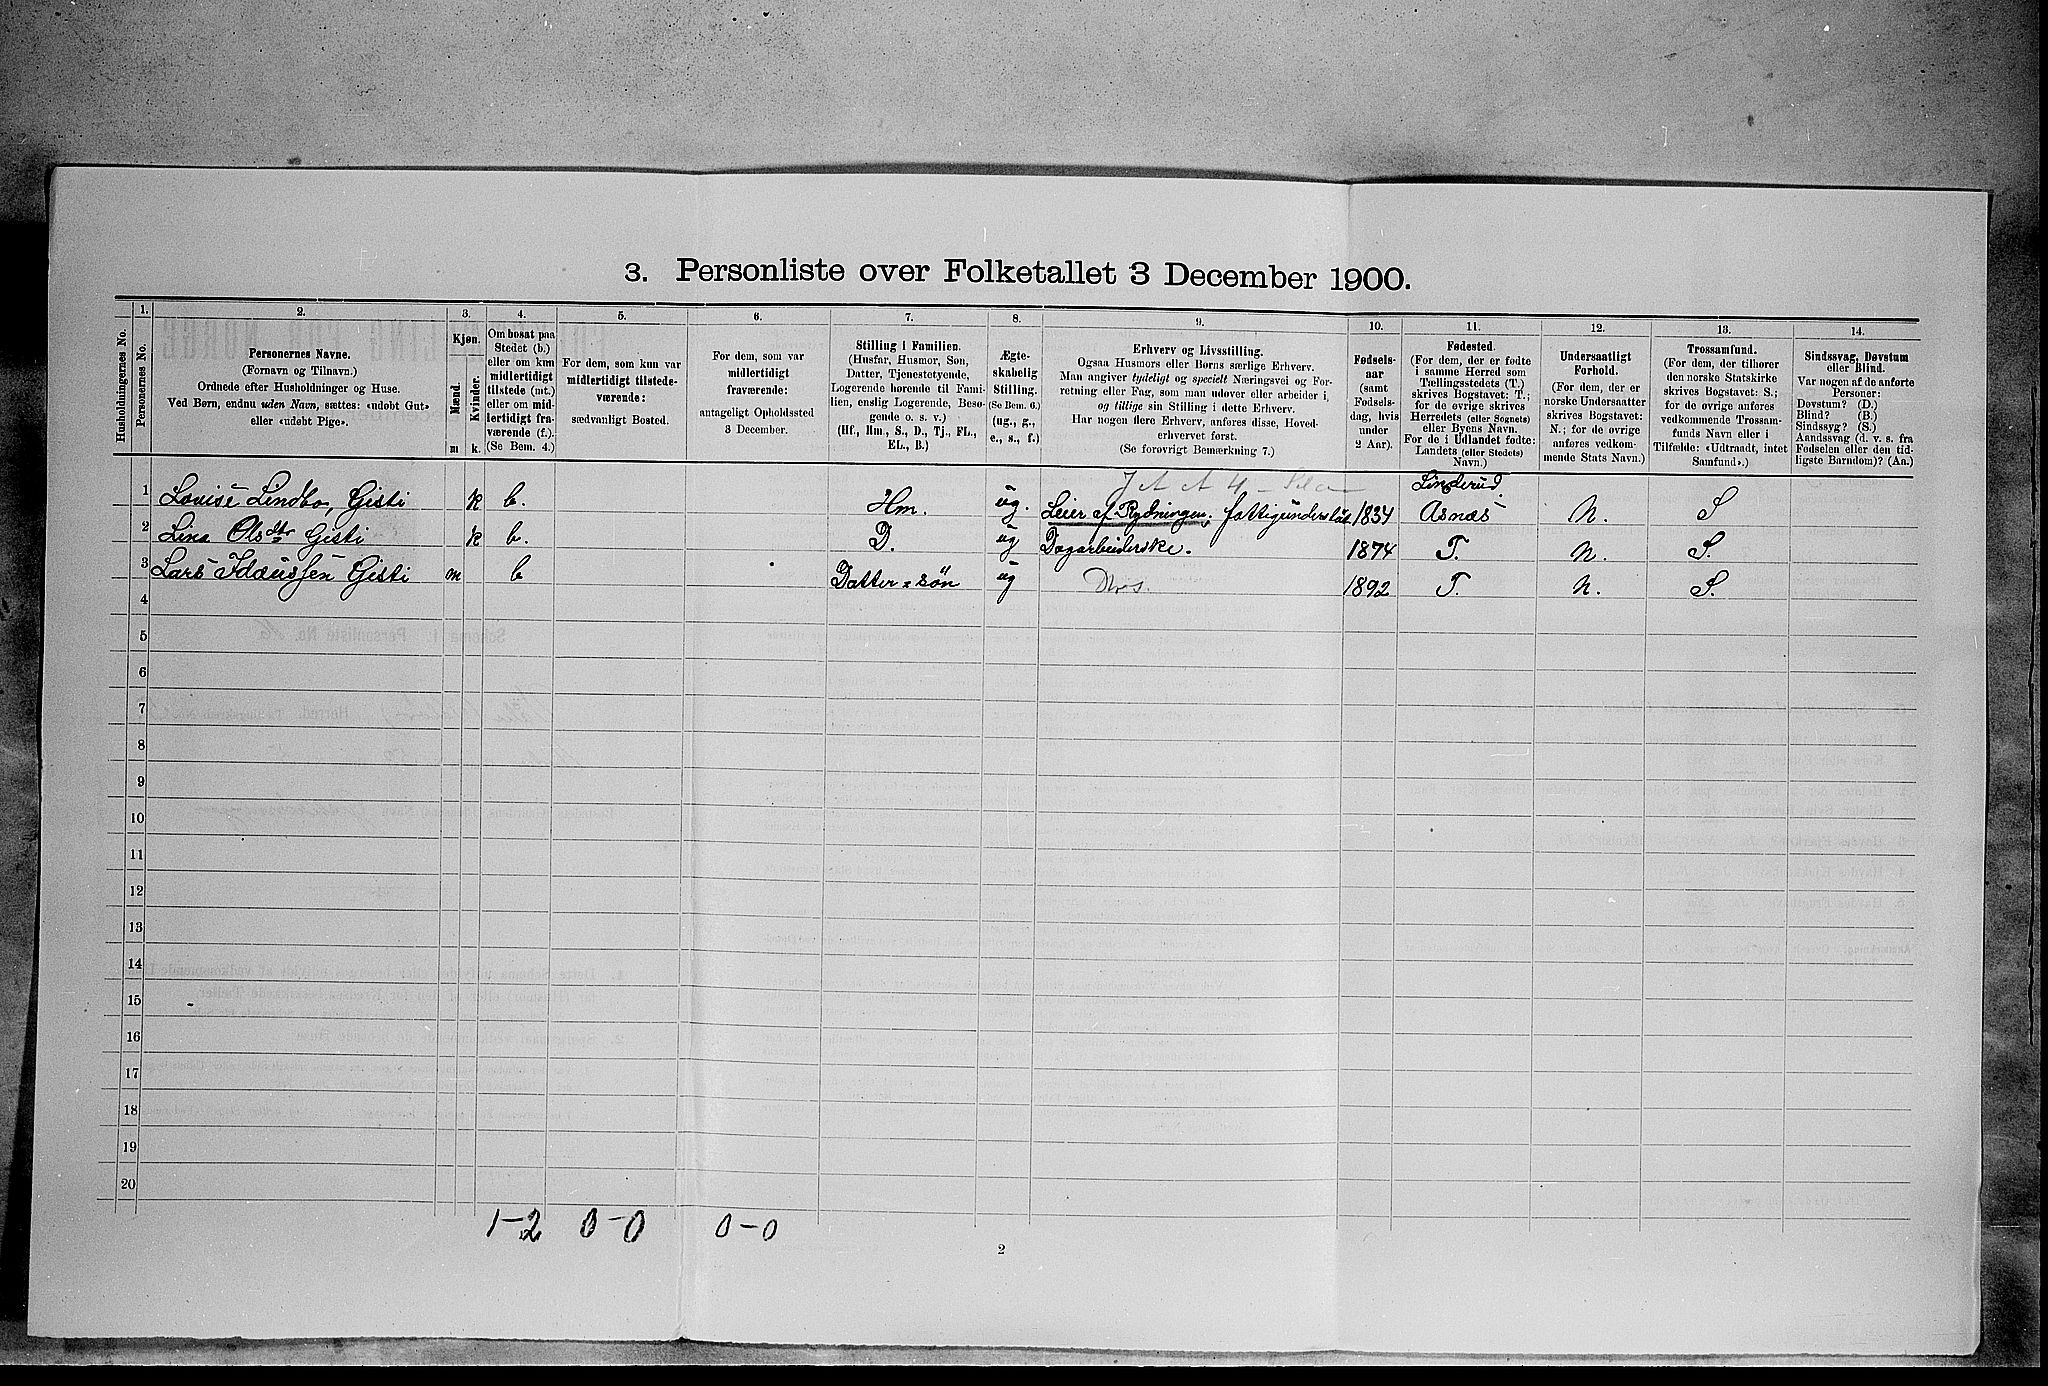 3. Personliste over Folketallet 3 December 1900.
Husholdningernes No.
1.
Personernes No.
2.
Personernes Navne.
(Fornavn og Tilnavn.)
Ordnede efter Husholdninger og Huse.
Ved Børn, endnu uden Navn, sættes: «udøbt Gut»
eller «udøbt Pige».
3.
Kjøn.
Mænd.
Kvinder.
m k.
4.
Om bosat paa
Stedet (b.)
eller om kun
midlertidigt
tilstede (mt.)
eller om mid-
lertidigt fra-
værende (f.).
(Se Bem. 4.)
5.
For dem, som kun var
midlertidigt tilstede-
værende:
sædvanligt Bosted.
6.
For dem, som var
midlertidigt
fraværende:
antageligt Opholdssted
3 December.
7.
Stilling i Familien.
(Husfar, Husmor, Søn,
Datter, Tjenestetyende,
Logerende hørende til Fami-
lien, enslig Logerende, Besø-
gende o. s. v.)
(Hf., Hm., S., D., Tj., FL.,
EL., B.)
8.
Ægte-
skabelig
Stilling.
(Se Bem. 6.)
(ug., g.,
e., s., f.)
9.
Erhverv og Livsstilling.
Ogsaa Husmors eller Børns særlige Erhverv.
Man angiver tydeligt og specielt Næringsvei og For-
retning eller Fag, som man udøver eller arbeider i,
og tillige sin Stilling i dette Erhverv.
Har nogen flere Erhverv, anføres disse, Hoved-
erhvervet først.
(Se forøvrigt Bemærkning 7.)
10.
Fødsels-
aar
(samt
Fødsels-
dag, hvis
under
2 Aar).
11.
Fødested.
(For dem, der er fødte
i samme Herred som
Tællingsstedets (T.)
skrives Bogstavet: T.;
for de øvrige skrives
Herredets (eller Sognets)
eller Byens Navn.
For de i Udlandet fødte:
Landets (eller Stedets)
Navn.)
12.
Undersaatligt
Forhold.
(For dem, der er
norske Undersaatter
skrives Bogstavet:
N.; for de øvrige
anføres vedkom-
mende Stats Navn.)
13.
Trossamfund.
(For dem, der tilhører
den norske Statskirke
skrives Bogstavet: S.;
for de øvrige anføres
vedkommende Trossam-
funds Navn eller i
Tilfælde: «Udtraadt, intet
Samfund».)
14.
Sindssvag, Døvstum
eller Blind.
Var nogen af de anførte
Personer:
Døvstum? (D.)
Blind? (B.)
Sindssyg? (S.)
Aandssvag (d. v. s. fra
Fødselen eller den tid-
ligste Barndom)? (Aa.)
1 Lovise Lindbo, Gisti k b. Hm. ug. Leier af Rydningen, fattigunderstøt 1834 Linderud Asnæs N. S
2 Lina Olsdtr Gisti k b. D. ug Dagarbeiderske. 1874 T. N. S.
3 Lars Idæussen Gisti m b Datter-søn ug 1892 T. N. S.
4
5
6
7
8
9
10
11
12
13
14
15
16
17
18
19
20
1-2 0-0 0-0
2